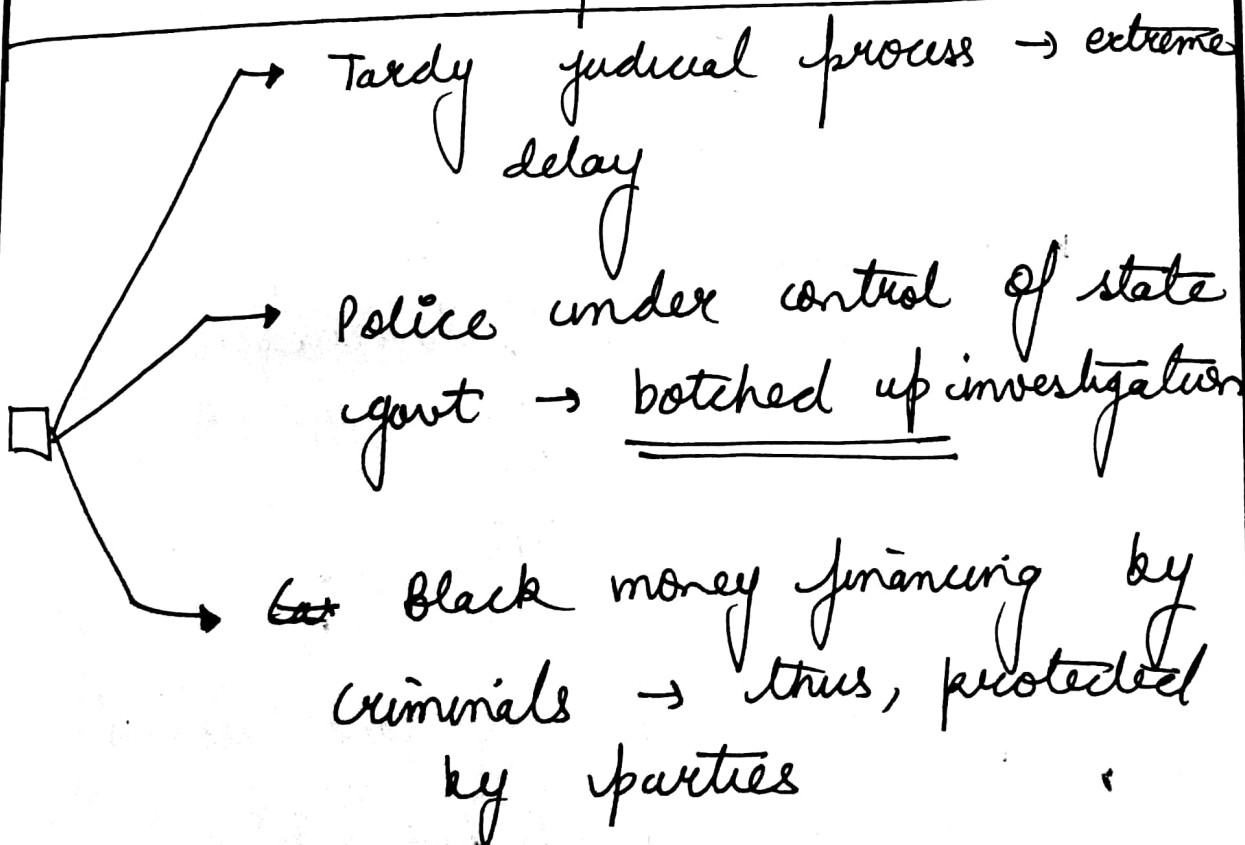 Tardy judicial process → extreme
delay
Police under control of state
govt → botched up investigation
Black money financing by
criminals → thus, protected
by parties